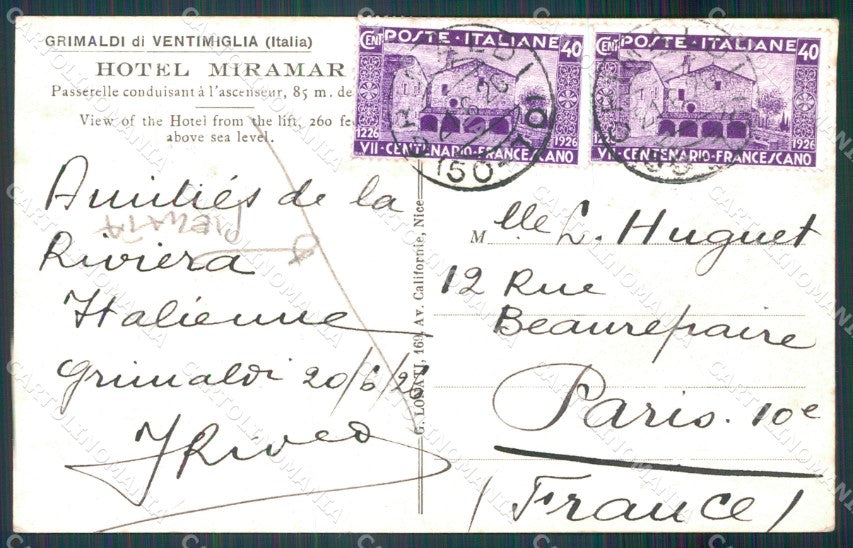 GRIMALDI di VENTIMIGLIA (Italia)
HOTEL MIRAMAR
Passerelle conduisant à l'ascenseur, 85 m. de
View of the Hotel from the lift, 260 fee
above sea level.
CENT POSTE ITALIANE 40
1226 1926
VII-CENTENARIO-FRANCESCANO
CENT POSTE ITALIANE 40
1226 1926
VII-CENTENARIO-FRANCESCANO
Amitiés de la
Riviera
Italienne
Grimaldi 20/6/26
PIEGATA
G. LOMATI, 169, Av. Californie, Nice
Mlle L. Huguet
12 Rue
Beaurepaire
Paris. 10e
(France)
CARTOLINOMANIA